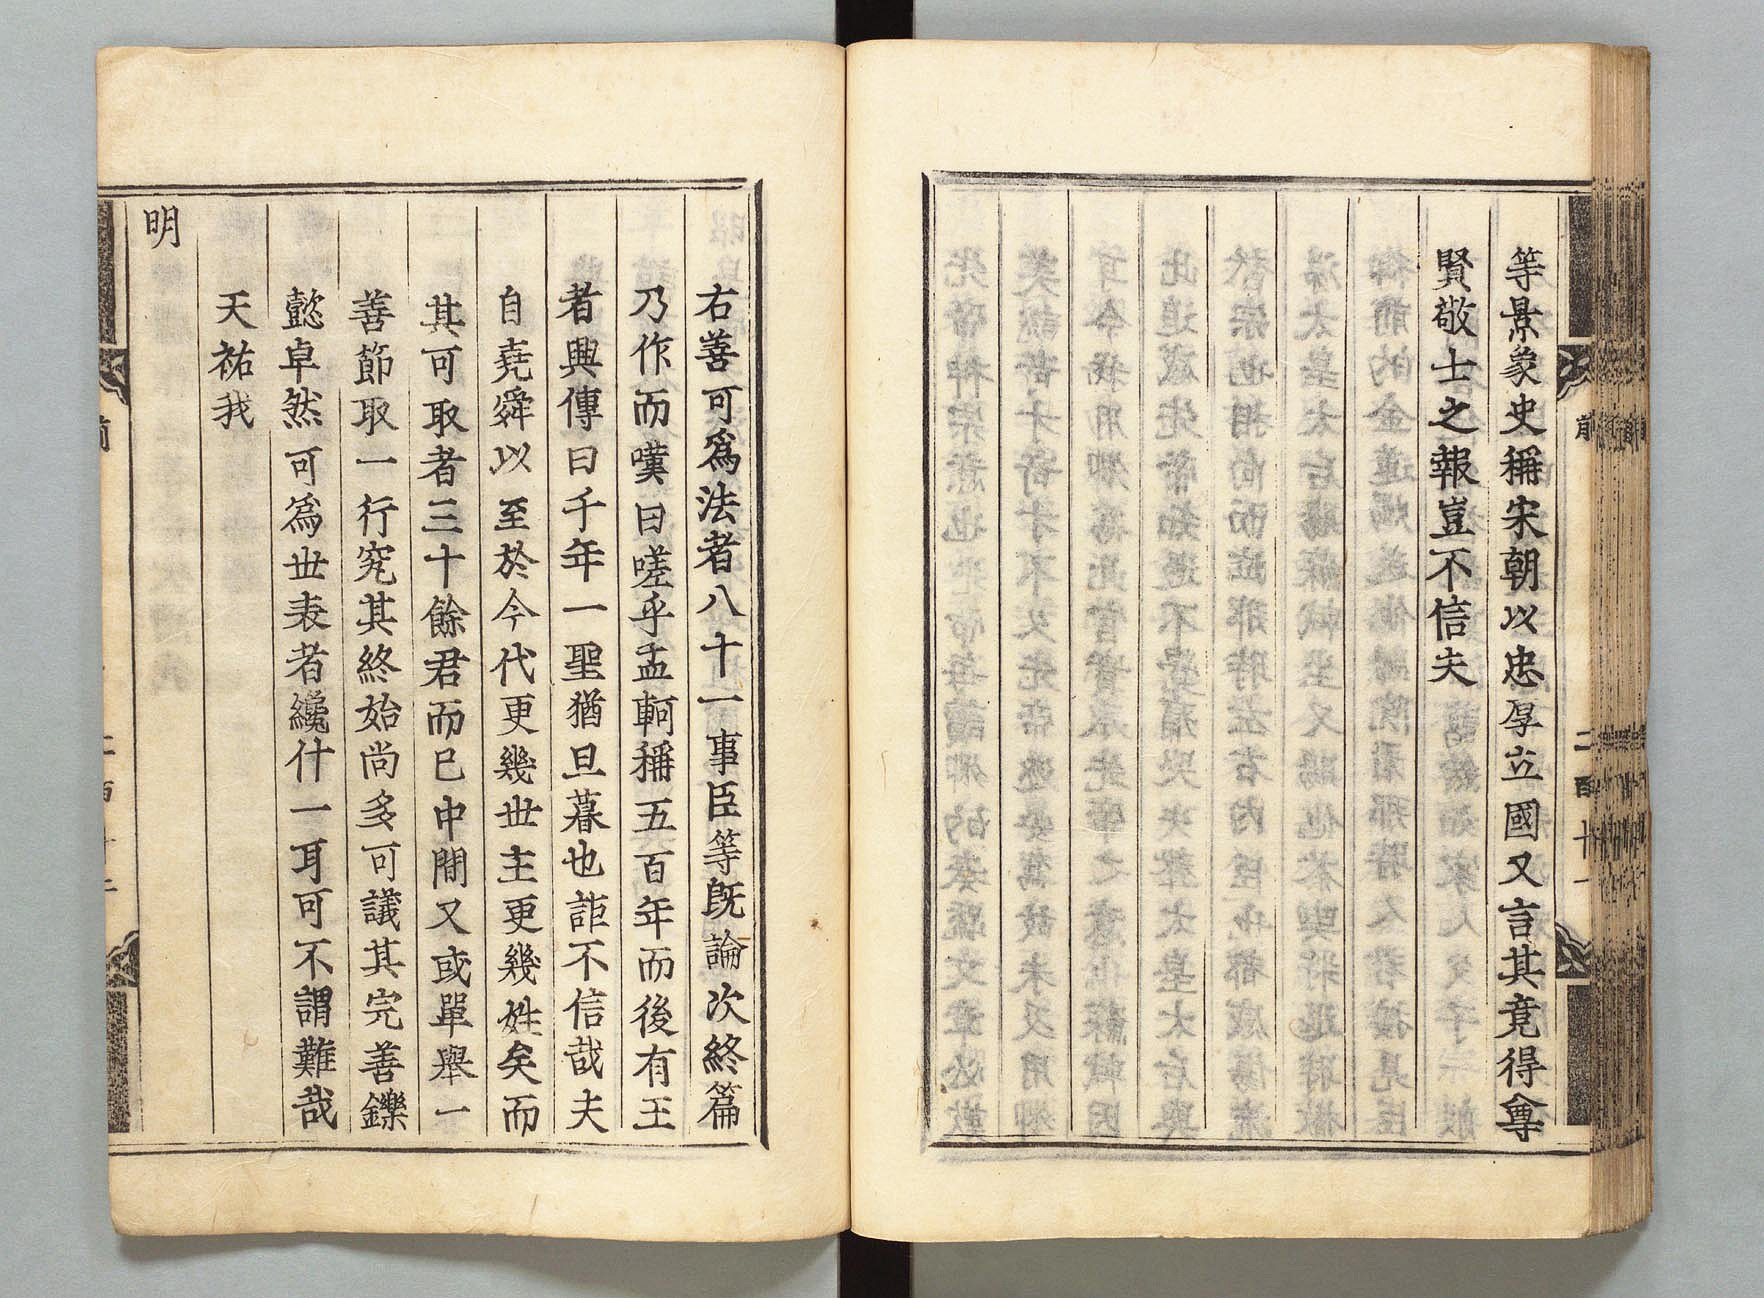 等景象史稱宋朝以忠厚立國又言其竟得尊
賢敬士之報豈不信夫
前
二百十一
右善可爲法者八十一事臣等旣論次終篇
乃作而嘆曰嗟乎孟軻稱五百年而後有王
者興傳曰千年一聖猶旦暮也詎不信哉夫
自堯舜以至於今代更幾世主更幾姓矣而
其可取者三十餘君而已中間又或單舉一
善節取一行究其終始尚多可議其完善鑠
懿卓然可爲世表者纔什一耳可不謂難哉
天祐我
明
前